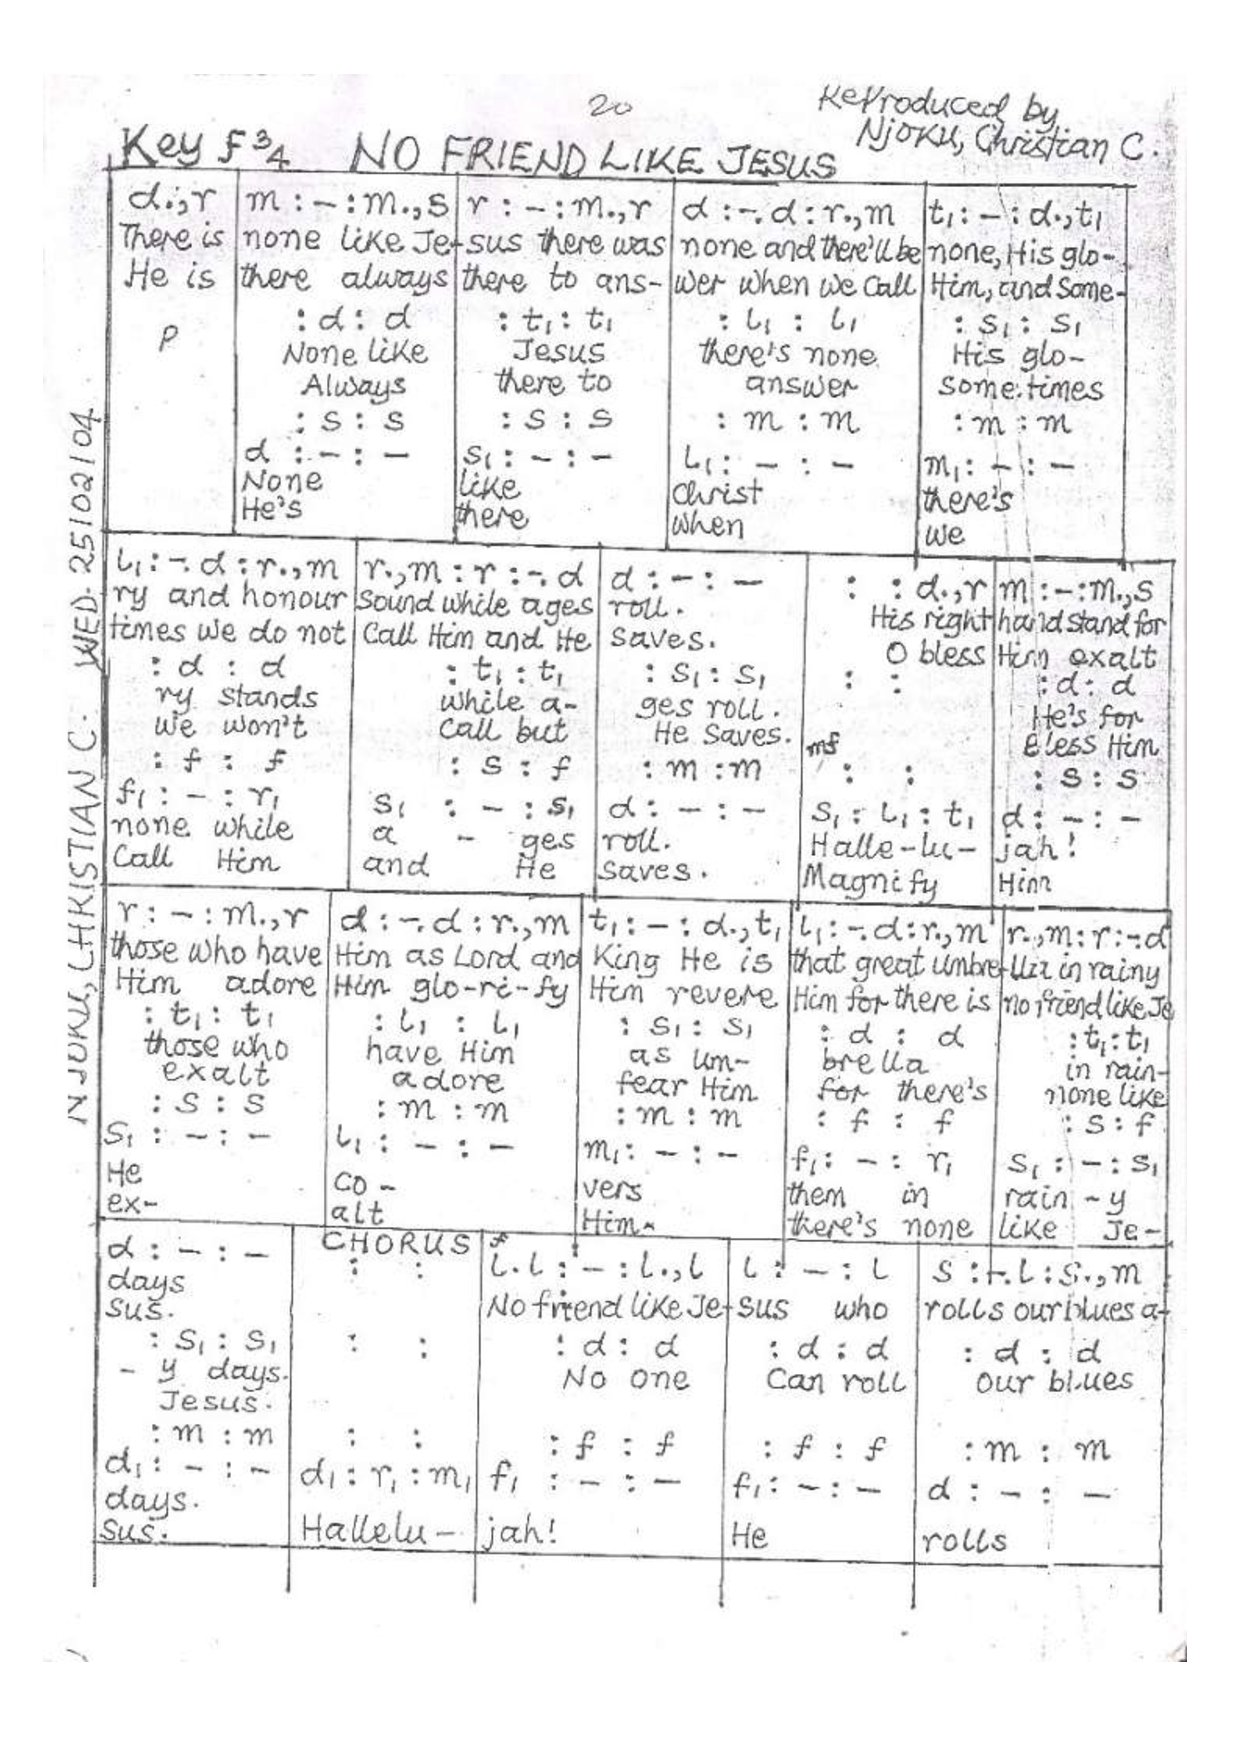 20
Reproduced by
Njoku, Christian C.
Key F 3/4 NO FRIEND LIKE JESUS
d.,r | m : – : m.,s | r : – : m.,r | d : –. d : r.,m | t₁ : – : d.,t₁
There is | none like Je- | sus there was | none and there'll be | none, His glo-
He is | there always | there to ans- | wer when we Call | Him, and Some-
: d : d | : t₁ : t₁ | : l₁ : l₁ | : s₁ : s₁
p | None like | Jesus | there's none | His glo-
Always | there to | answer | some times
: s : s | : s : s | : m : m | : m : m
d : – : – | s₁ : – : – | l₁ : – : – | m₁ : – : –
None | like | Christ | there's
He's | there | when | we
l₁ : –. d : r.,m | r.,m : r : –. d | d : – : – | : : d.,r | m : – : m.,s
ry and honour | Sound while ages | roll. | His right | hand stand for
times we do not | Call Him and He | saves. | O bless | Him exalt
: d : d | : t₁ : t₁ | : s₁ : s₁ | : : | : d : d
ry stands | while a- | ges roll. | He's for
we won't | Call but | He Saves. | mf | Bless Him
: f : f | : s : f | : m : m | : : | : s : s
f₁ : – : r₁ | s₁ : – : s₁ | d : – : – | s₁ : l₁ : t₁ | d : – : –
none while | a - ges | roll. | Halle-lu- | jah!
Call Him | and He | saves. | Magnify | Him
r : – : m.,r | d : –. d : r.,m | t₁ : – : d.,t₁ | l₁ : –. d : r.,m | r.,m : r : –. d
those who have | Him as Lord and | King He is | that great umbre- | lla in rainy
Him adore | Him glo-ri-fy | Him revere | Him for there is | no friend like Je
: t₁ : t₁ | : l₁ : l₁ | : s₁ : s₁ | : d : d | : t₁ : t₁
those who | have Him | as um- | brella | in rain-
exalt | adore | fear Him | for there's | none like
: s : s | : m : m | : m : m | : f : f | : s : f
s₁ : – : – | l₁ : – : – | m₁ : – : – | f₁ : – : r₁ | s₁ : – : s₁
He | co - | vers | them in | rain - y
ex- | alt | Him- | there's none | like Je-
d : – : – | CHORUS : : | f l. l : – : l.,l | l : – : l | s : –. l : s.,m
days | No friend like Je- | sus who | rolls our blues a-
sus.
: s₁ : s₁ | : : | : d : d | : d : d | : d : d
- y days. | No one | Can roll | our blues
Jesus.
: m : m | : : | : f : f | : f : f | : m : m
d₁ : – : – | d₁ : r₁ : m₁ | f₁ : – : – | f₁ : – : – | d : – : –
days.
sus. | Hallelu- | jah! | He | rolls
NJOKU, CHRISTIAN C. WED. 25/02/04